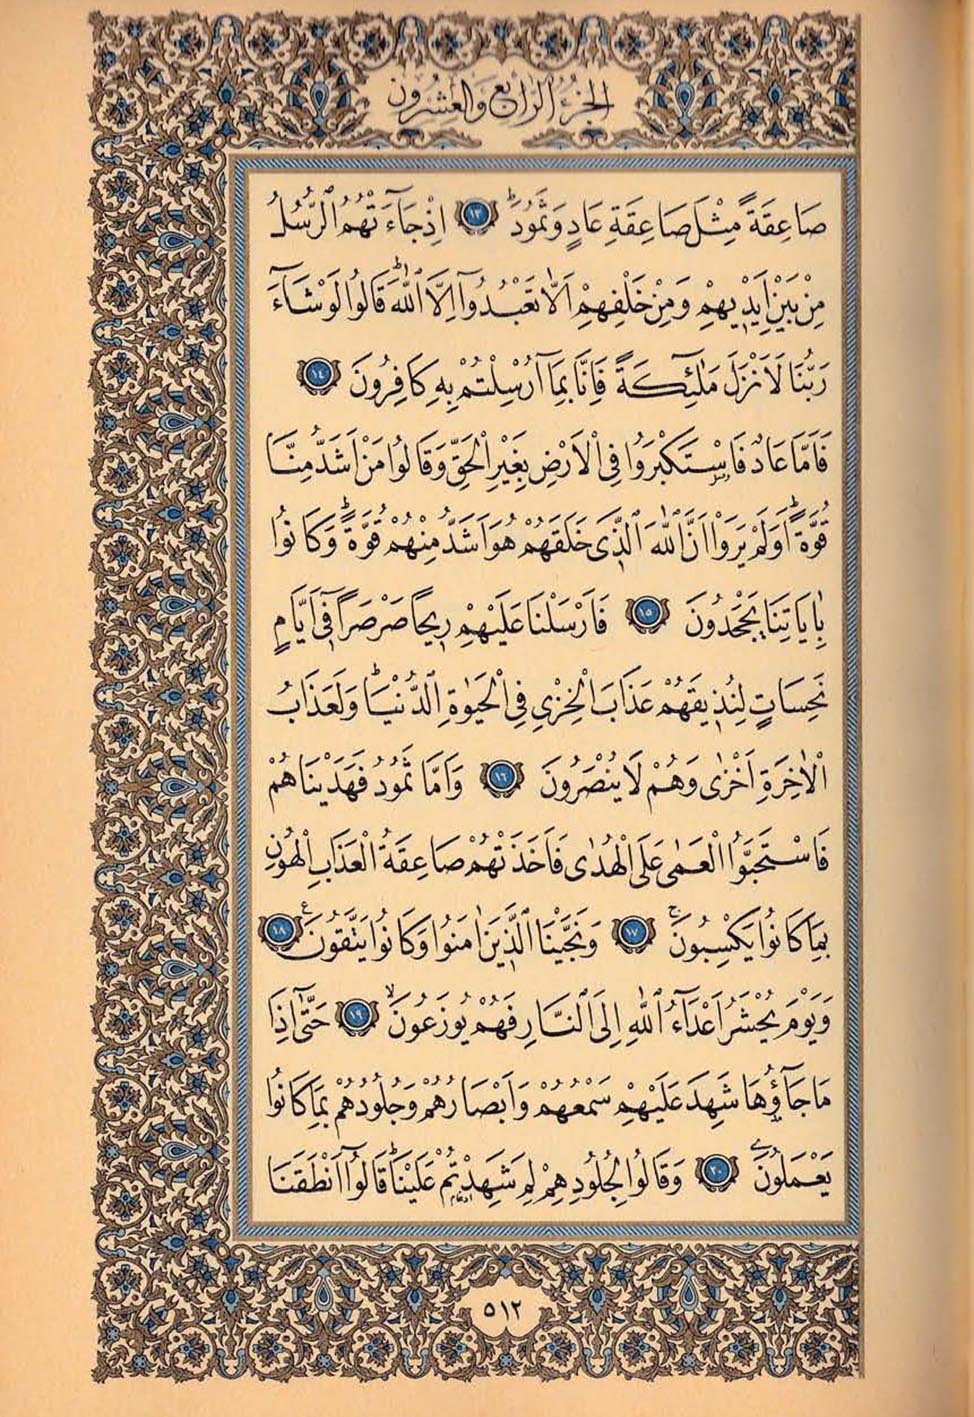 الجزء الرابع والعشرون
صَاعِقَةً مِثْلَ صَاعِقَةِ عَادٍ وَثَمُودَۜ ﴿١٣﴾ اِذْ جَٓاءَتْهُمُ الرُّسُلُ
مِنْ بَيْنِ اَيْدٖيهِمْ وَمِنْ خَلْفِهِمْ اَلَّا تَعْبُدُٓوا اِلَّا اللّٰهَؕ قَالُوا لَوْ شَٓاءَ
رَبُّنَا لَاَنْزَلَ مَلٰٓئِكَةً فَاِنَّا بِمَٓا اُرْسِلْتُمْ بِهٖ كَافِرُونَ ﴿١٤﴾
فَاَمَّا عَادٌ فَاسْتَكْبَرُوا فِي الْاَرْضِ بِغَيْرِ الْحَقِّ وَقَالُوا مَنْ اَشَدُّ مِنَّا
قُوَّةًؕ اَوَلَمْ يَرَوْا اَنَّ اللّٰهَ الَّذٖى خَلَقَهُمْ هُوَ اَشَدُّ مِنْهُمْ قُوَّةًؕ وَكَانُوا
بِاٰيَاتِنَا يَجْحَدُونَ ﴿١٥﴾ فَاَرْسَلْنَا عَلَيْهِمْ رٖيحًا صَرْصَرًا فٖٓى اَيَّامٍ
نَحِسَاتٍ لِنُذٖيقَهُمْ عَذَابَ الْخِزْيِ فِي الْحَيٰوةِ الدُّنْيَاؕ وَلَعَذَابُ
الْاٰخِرَةِ اَخْزٰى وَهُمْ لَا يُنْصَرُونَ ﴿١٦﴾ وَاَمَّا ثَمُودُ فَهَدَيْنَاهُمْ
فَاسْتَحَبُّوا الْعَمٰى عَلَى الْهُدٰى فَاَخَذَتْهُمْ صَاعِقَةُ الْعَذَابِ الْهُونِ
بِمَا كَانُوا يَكْسِبُونَۚ ﴿١٧﴾ وَنَجَّيْنَا الَّذٖينَ اٰمَنُوا وَكَانُوا يَتَّقُونَ ع ﴿١٨﴾
وَيَوْمَ يُحْشَرُ اَعْدَٓاءُ اللّٰهِ اِلَى النَّارِ فَهُمْ يُوزَعُونَۙ ﴿١٩﴾ حَتّٰٓى اِذَا
مَا جَٓاؤُ۫هَا شَهِدَ عَلَيْهِمْ سَمْعُهُمْ وَاَبْصَارُهُمْ وَجُلُودُهُمْ بِمَا كَانُوا
يَعْمَلُونَ ﴿٢٠﴾ وَقَالُوا لِجُلُودِهِمْ لِمَ شَهِدْتُمْ عَلَيْنَاؕ قَالُٓوا اَنْطَقَنَا
٥١٢